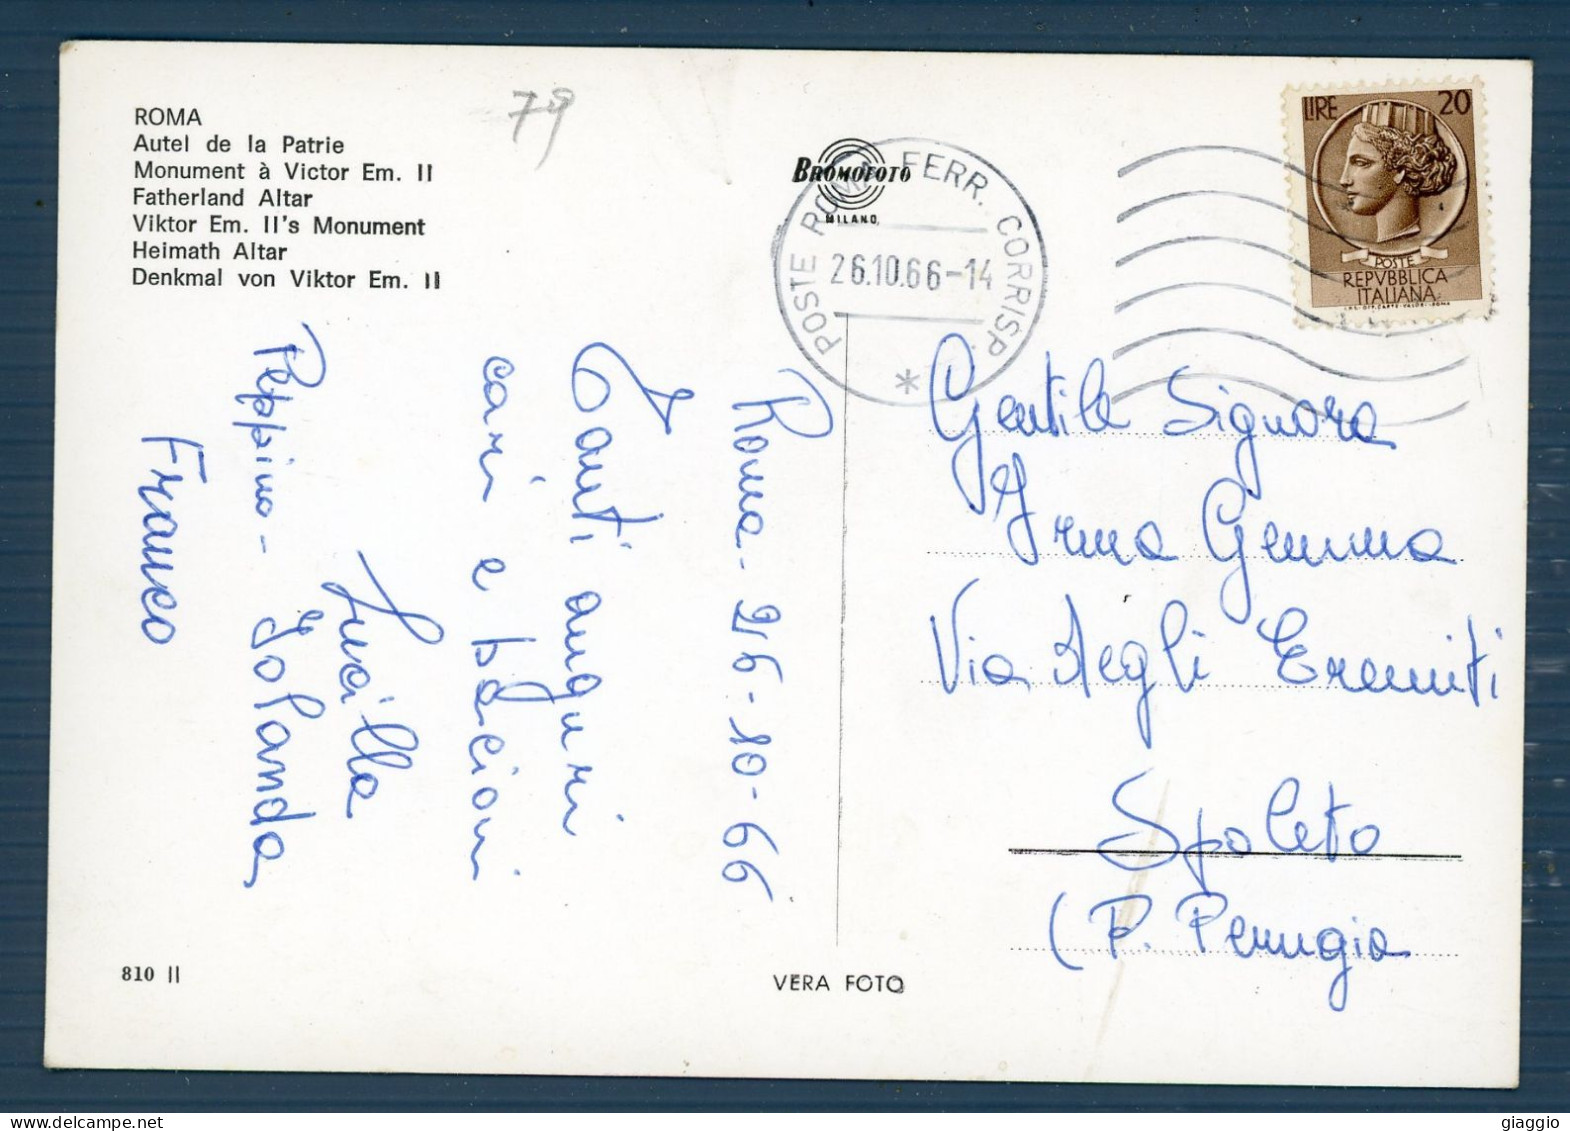 ROMA
Autel de la Patrie
Monument à Victor Em. II
Fatherland Altar
Viktor Em. II's Monument
Heimath Altar
Denkmal von Viktor Em. II
79
BROMOFOTO
MILANO
POSTE ROMA FERR. CORRISP.
26.10.66-14
*
LIRE 20
POSTE
REPVBBLICA
ITALIANA
Roma - 26-10-66
Tanti auguri
cari e bacioni
Peppino - Jolanda
Franco
Gentile Signora
Irma Gemma
Via Degli Eremiti
Spoleto
(P. Perugia
810 II
VERA FOTO
giaggio